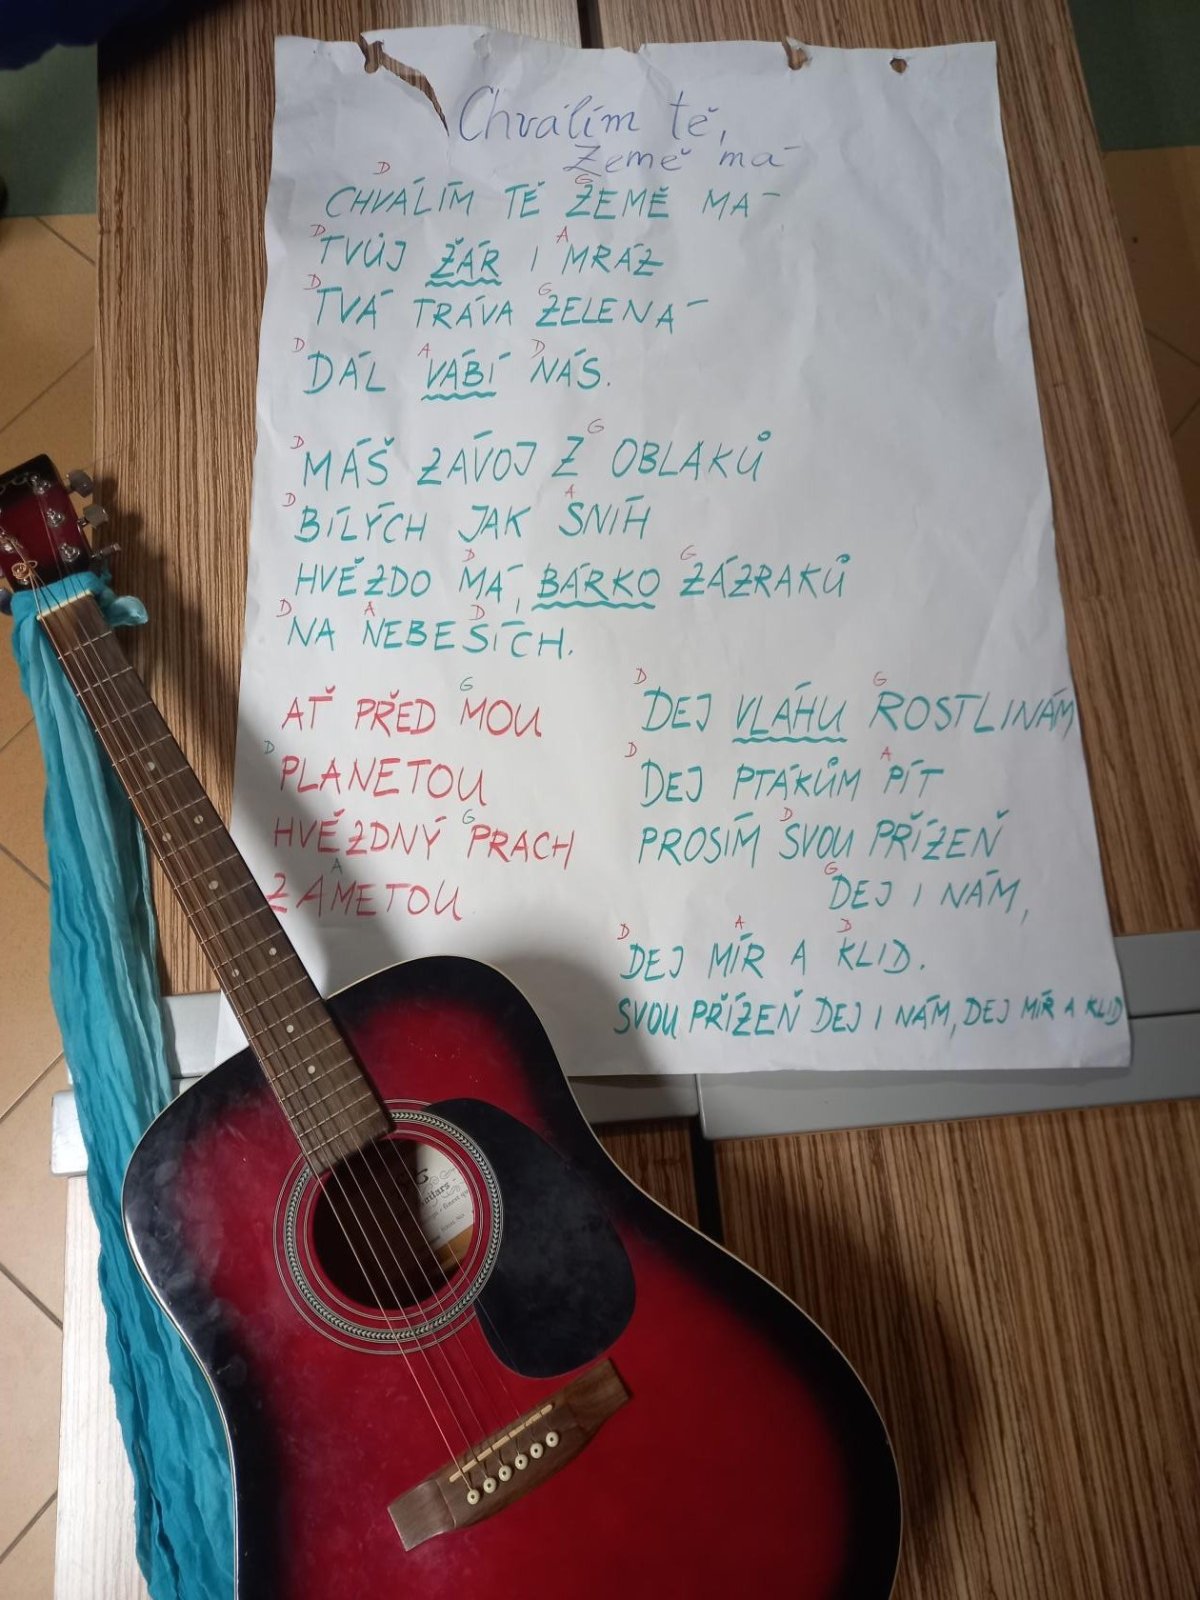 Chválím tě,
Země má
D
CHVÁLÍM TĚ ZEMĚ MÁ
G
D
TVŮJ ŽÁR I MRÁZ
A
D
TVÁ TRÁVA ZELENÁ
G
D A D
DÁL VÁBÍ NÁS.
D G
MÁŠ ZÁVOJ Z OBLAKŮ
D A
BÍLÝCH JAK SNÍH
D G
HVĚZDO MÁ, BÁRKO ZÁZRAKŮ
D A D
NA NEBESÍCH.
G
AŤ PŘED MOU
D
PLANETOU
G
HVĚZDNÝ PRACH
A
ZAMETOU
D G
DEJ VLÁHU ROSTLINÁM
D A
DEJ PTÁKŮM PÍT
D
PROSÍM SVOU PŘÍZEŇ
G
DEJ I NÁM,
D A D
DEJ MÍR A KLID.
SVOU PŘÍZEŇ DEJ I NÁM, DEJ MÍR A KLID